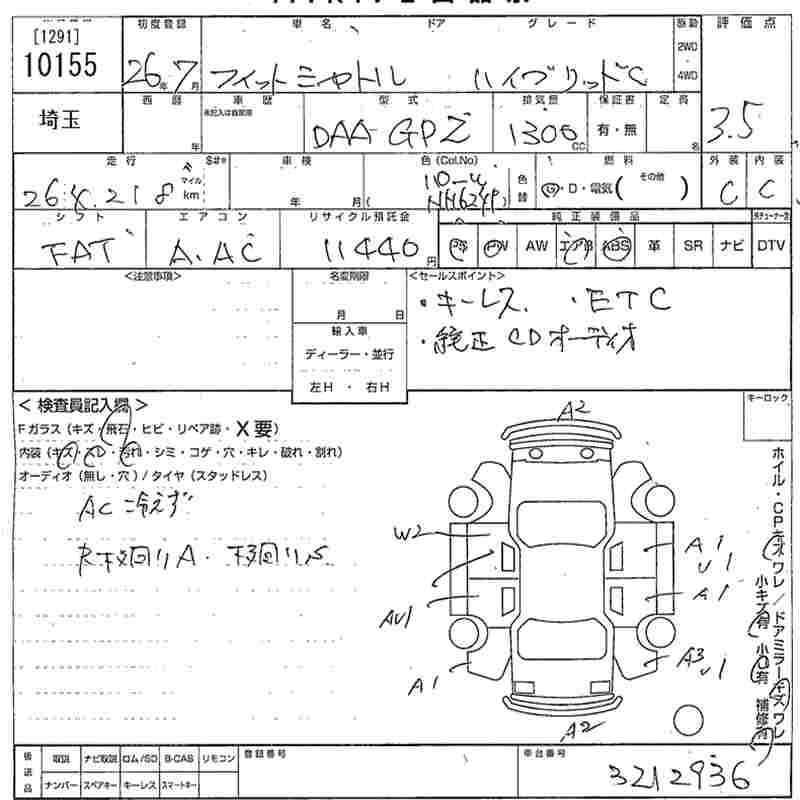 [1291]
10155
初度登録 車名 ドア グレード 駆動 評価点
26年 7月 フィットシャトル ハイブリッドC 2WD
4WD
3.5
埼玉
西暦 車歴 型式 排気量 保証書 定員
年 未記入は自家用 DAA-GP2 1300 CC 有・無 名
走行 車検 色(Col.No) 燃料 外装 内装
マイル
km 年 月( ) 色替 ・D・電気( その他 ) C C
シフト エアコン リサイクル預託金 純正装備品
FAT A.AC 11440円 AW エアB ABS 革 SR ナビ DTV
<注意事項> 名変期限 <セールスポイント>
月 日 ・キーレス ・ETC
輸入車 ・純正CDオーディオ
ディーラー・並行
左H ・ 右H
< 検査員記入欄 > キーロック
Fガラス(キズ・飛石・ヒビ・リペア跡・X要)
内装(キズ・スレ・汚れ・シミ・コゲ・穴・キレ・破れ・割れ)
オーディオ(無し・穴)/タイヤ(スタッドレス)
AC 冷えず
下回りS
A2
W2
A1
U1
A1
AU1
A3
U1
A1
A2
ホイル・CPキズ ワレ/ドアミラーキズ ワレ
小キズ有 小凹有 補修有
後送品 取説 ナビ取説 ロム/SD B-CAS リモコン 登録番号 車台番号
ナンバー スペアキー キーレス スマートキー 3212936